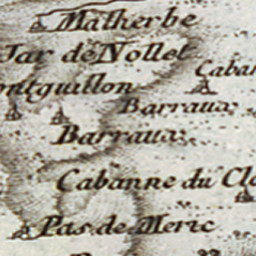 Malherbe
Jar de Nollet
Caban
ontguillon
Barraux
Barraux
Cabanne du Clo
Pas de Meric